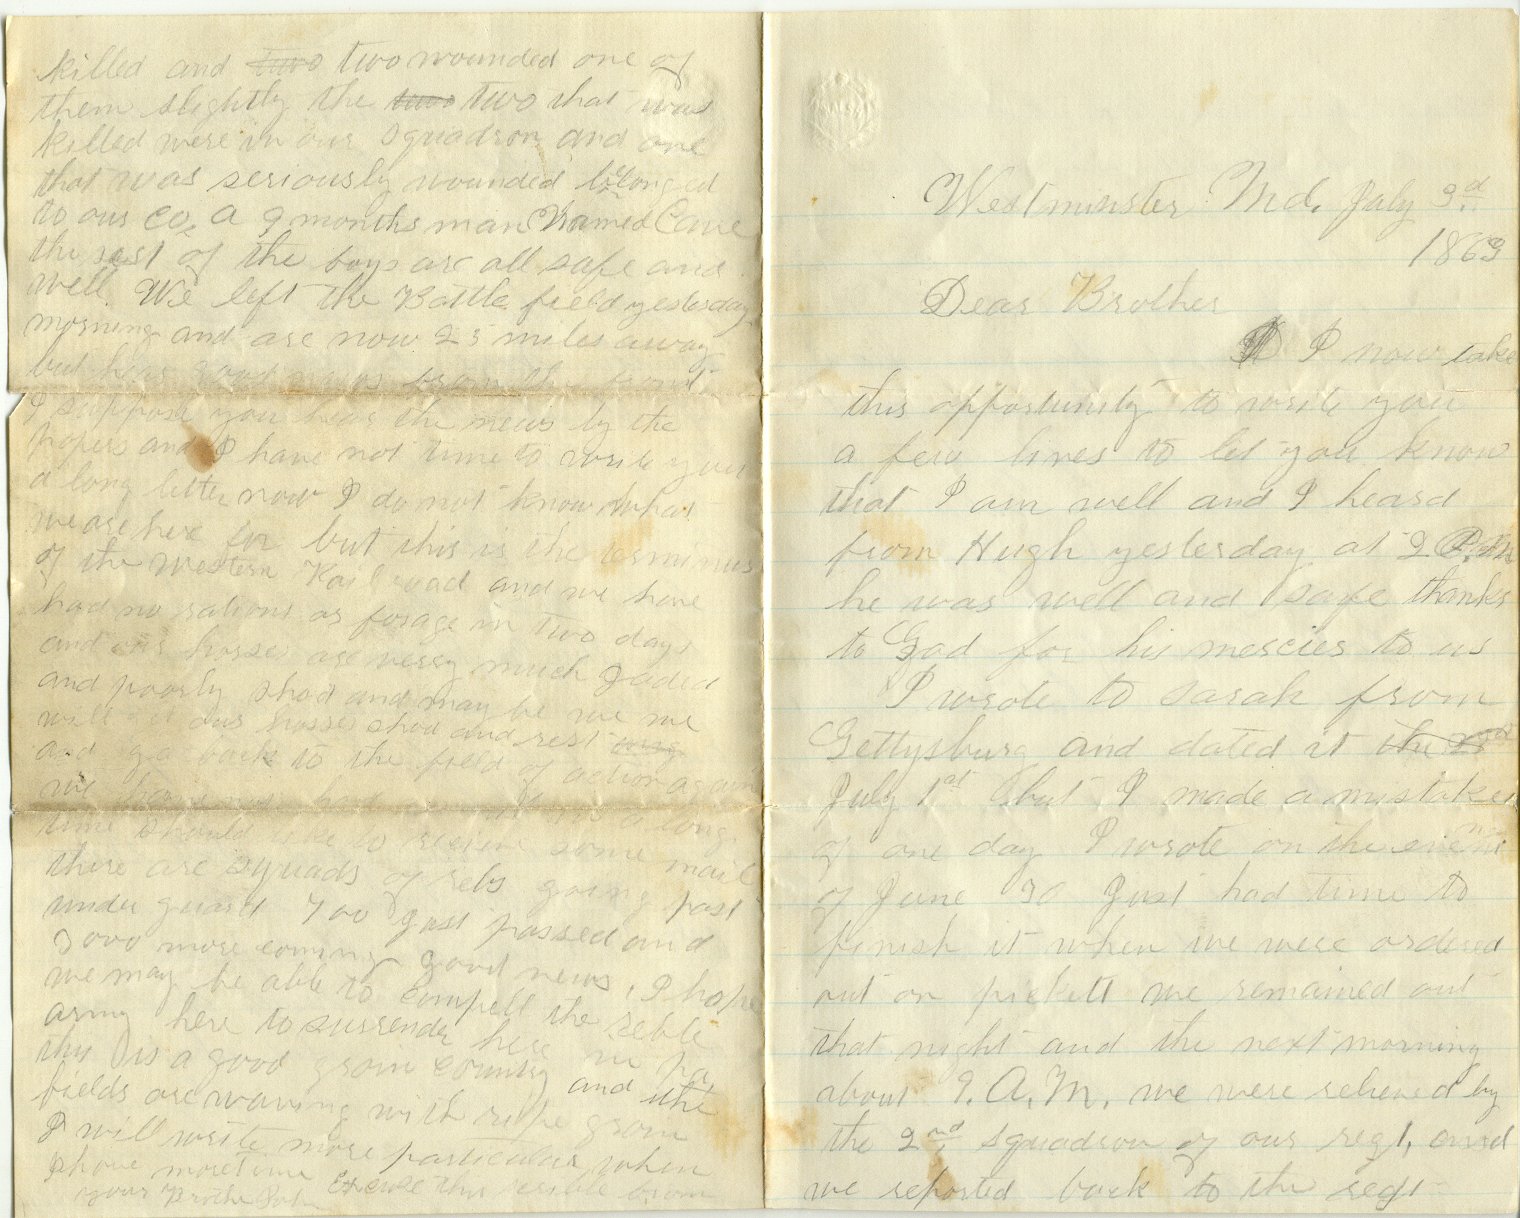 Westminster Md. July 3rd
1863
Dear Brother
I now take
this opportunity to write you
a few lines to let you know
that I am well and I heard
from Hugh yesterday at 2 P.M
he was well and safe thanks
to God for his mercies to us
I wrote to Sarah from
Gettysburg and dated it the
July 1st but I made a mistake
of one day I wrote on the
of June 30 Just had time to
finish it when we were ordered
out on pickett we remained out
that night and the next morning
about 9. A.M. we were relieved by
the 2nd Squadron of our regt, and
we reported back to the regt
killed and two two wounded one of
them slightly the two two that was
killed were in our Squadron and one
that was seriously wounded belonged
to our Co. A 9 months man Named
the rest of the boys are all safe and
well. We left the Battle field yesterday
morning and are now 25 miles away
but hear good news from the front
I suppose you hear the news by the
papers and I have not time to write you
a long letter now I do not know what
we are here for but this is the terminus
of the Western Rail road and we have
had no rations or forage in two days
and our horses are very much Jaded
and poorly shod and may be we
will get our horses shod and rest
and go back to the field of action again
we have not had a long
time should like to recieve some mail
there are squads of rebs going past
under guard 700 Just passed and
3000 more coming good news. I hope
we may be able to compell the reble
army here to surrender here in Pa
this is a good grain country and the
fields are waving with ripe grain
I will write more particular when
I have more time Excuse this
your Brother John